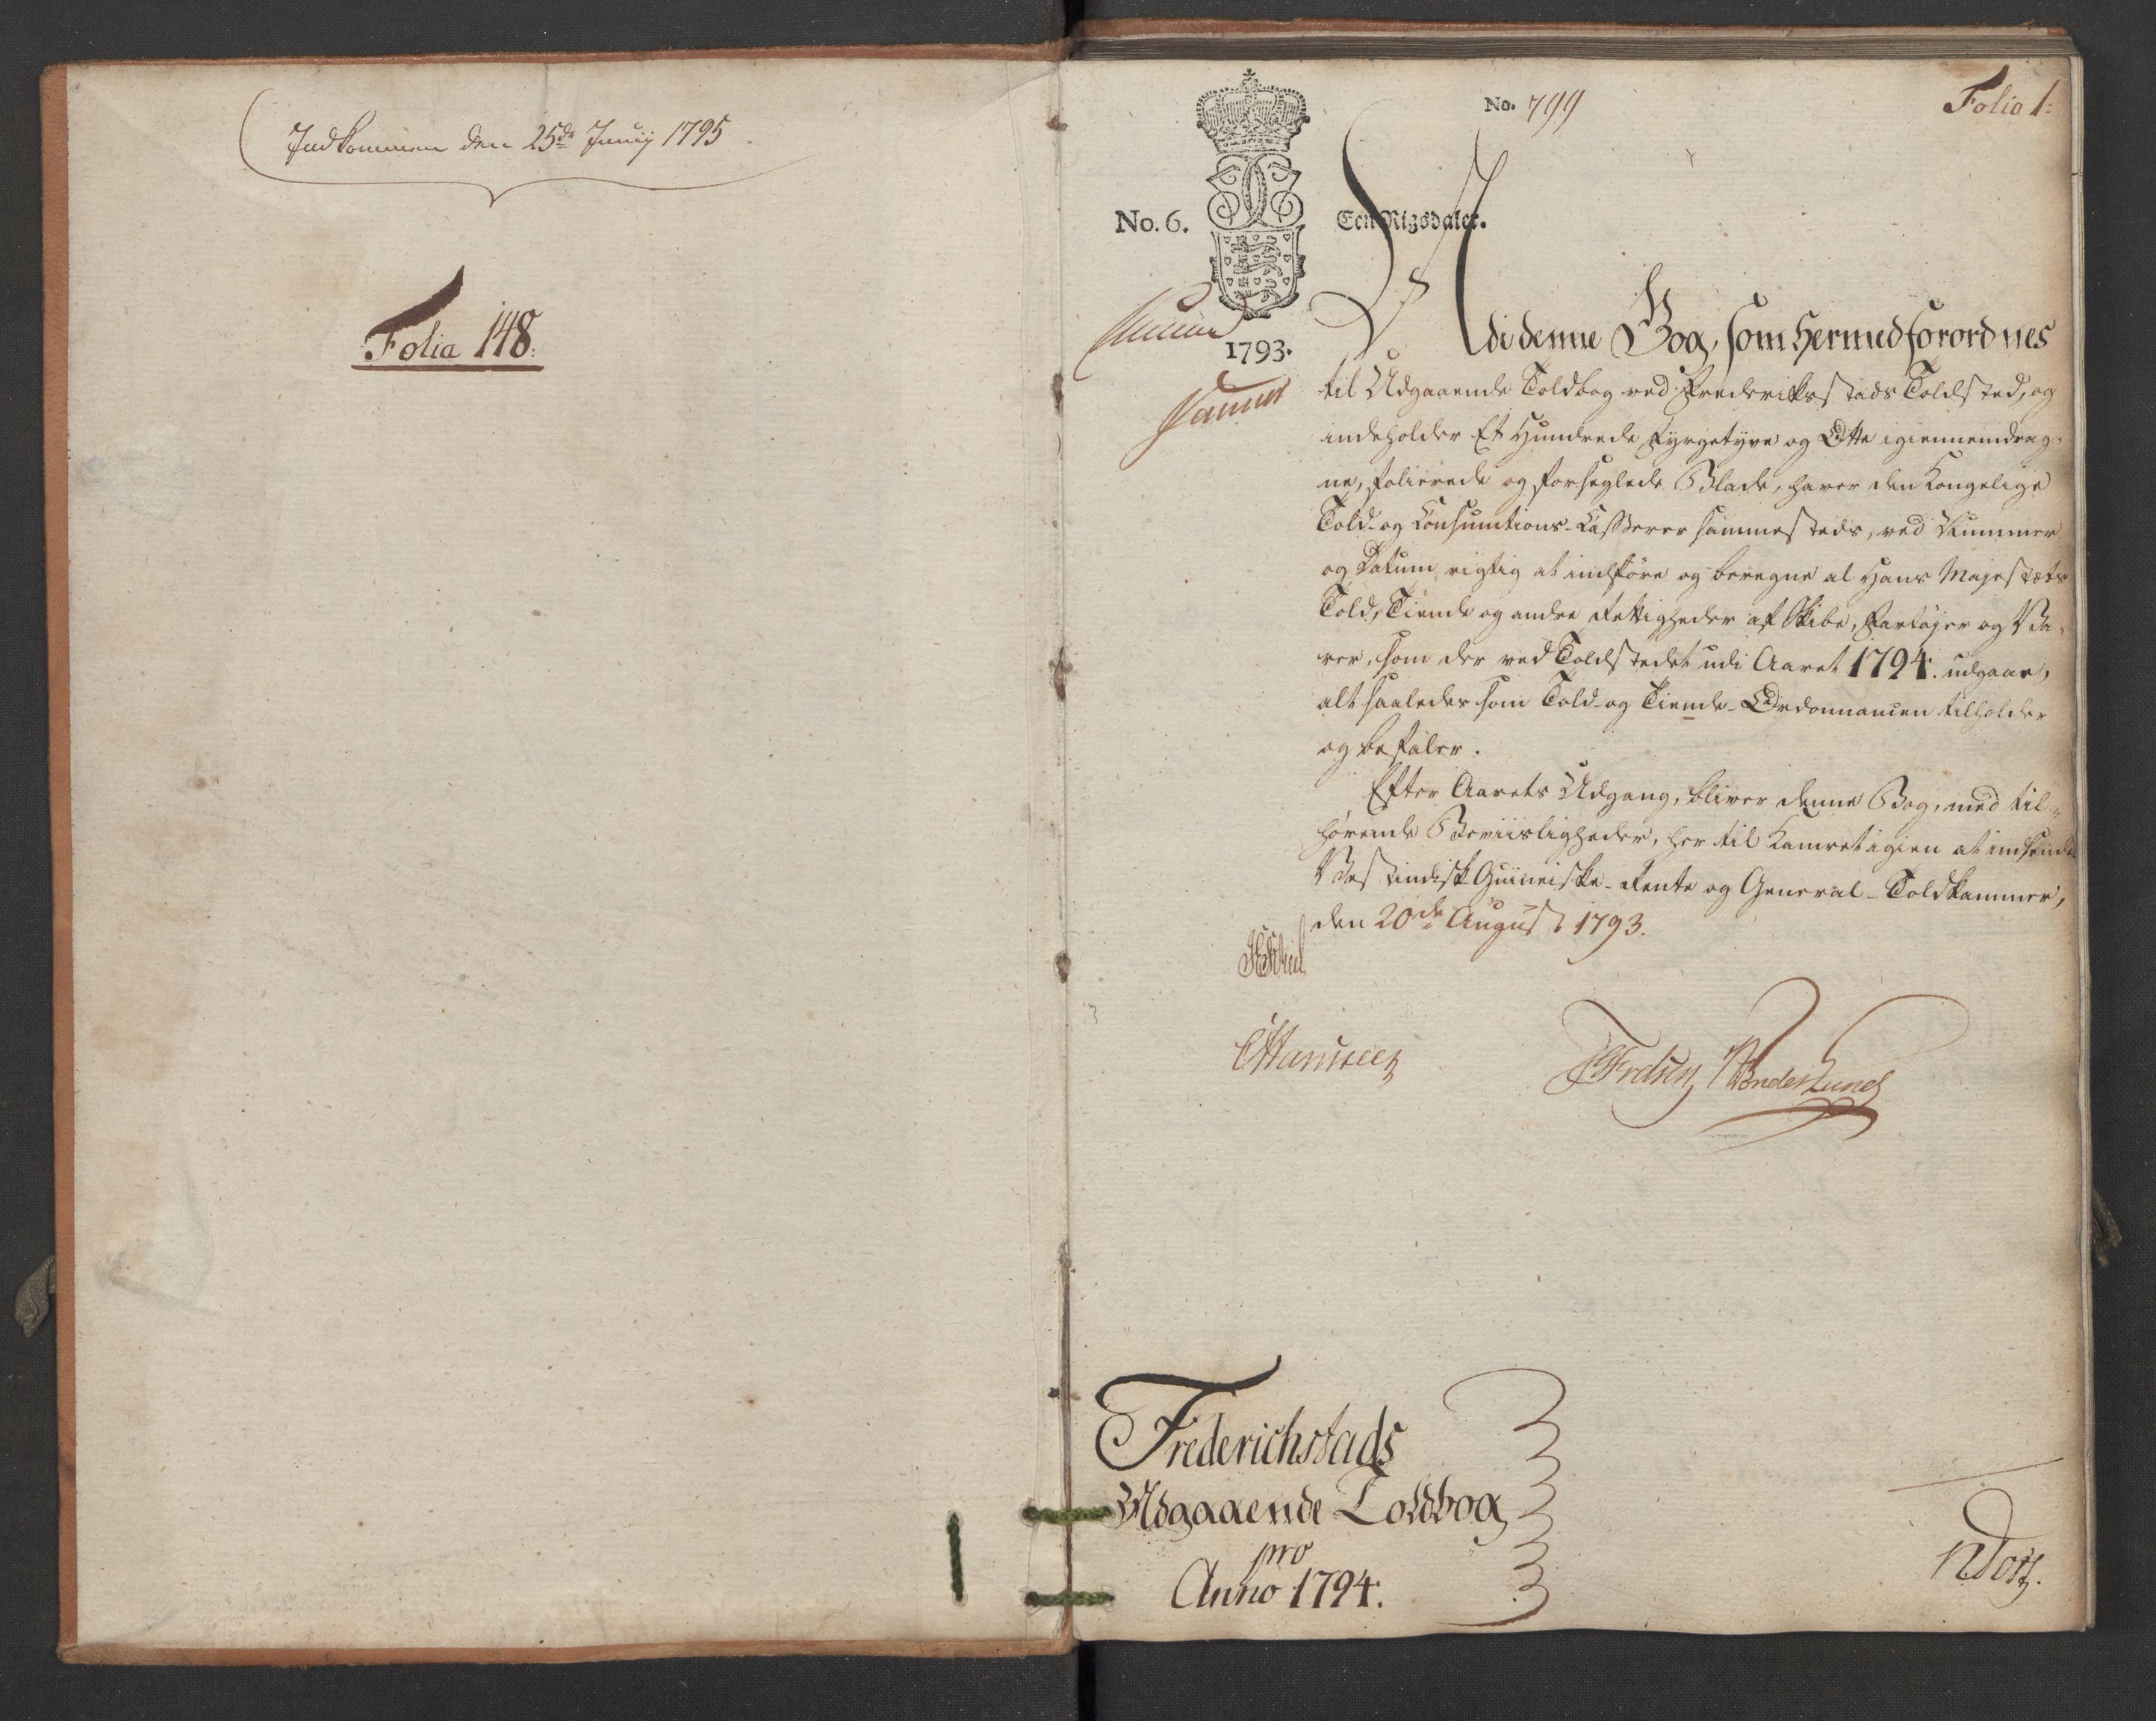 Indkommen den 25de Junij 1795
Folia 148.
No. 799
Folio 1:
No. 6.
Een Rigsdaler.
1793.
Udi denne Bog, som hermed forordnes
til Udgaaende Toldbog ved Frederiksstads Toldsted, og
indeholder Et Hundrede Fyrgetyve og Otte igiennemdrag-
ne, folierede og forseglede Blade, haver den Kongelige
Told- og Consumtions-Casserer sammesteds, ved Nummer
og Datum, rigtig at indføre og beregne al Hans Majestæts
Told, Tiende og andre Rettigheder af Skibe, Fartøjer og Va-
rer, som der ved Toldstedet udi Aaret 1794. udgaar,
alt saaledes som Told- og Tiende-Ordonnancen tilholder
og befaler.
Efter Aarets Udgang, bliver denne Bog, med til-
hørende Beviisligheder, her til Kamret igien at indsende
Vestindisk-Guineiske-Rente og General-Toldkammer,
den 20de August 1793.
Frederichstads
Udgaaende Toldbog
pro
Anno 1794.